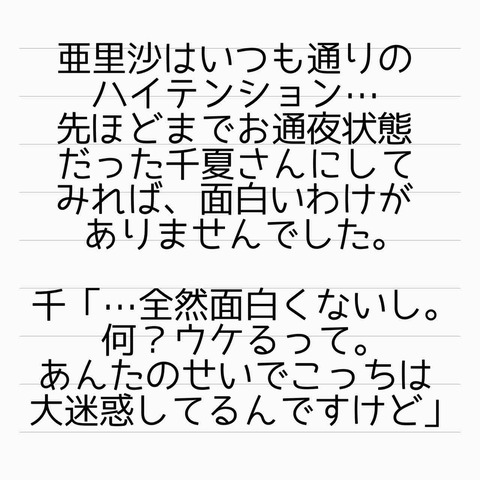 亜里沙はいつも通りの
ハイテンション…
先ほどまでお通夜状態
だった千夏さんにして
みれば、面白いわけが
ありませんでした。
千「…全然面白くないし。
何？ウケるって。
あんたのせいでこっちは
大迷惑してるんですけど」